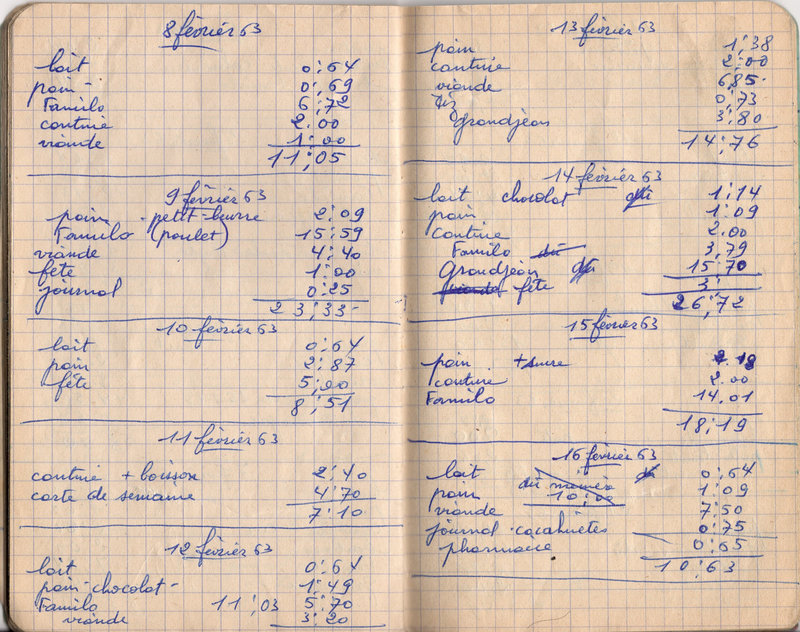 8 février 63
lait 0;64
pain - 0;69
Familo 6;72
cantine 2.00
viande 1;00
11;05
9 février 63
pain - petit-beurre 2;09
Familo (poulet) 15;59
viande 4;40
fête 1;00
journal 0;25
23;33
10 février 63
lait 0;64
pain 2;87
fête 5;00
8;51
11 février 63
cantine + boisson 2;40
carte de semaine 4;70
7;10
12 février 63
lait 0;64
pain-chocolat- 1;49
Familo 11;03 5;70
viande 3;20
13 février 63
pain 1;38
cantine 2;00
viande 6,85
riz 0;73
Grandjean 3;80
14;76
14 février 63
lait chocolat dû 1;14
pain 1;09
cantine 2.00
Familo dû 3,79
Grandjean dû 15;70
viande fête 3;
26;72
15 février 63
pain + sucre 2.18
cantine 2.00
Familo 14.01
18;19
16 février 63
lait dû 0;64
dû mémé
pain 10;00 1;09
viande 7;50
journal - cacahuetes 0;75
pharmacie 0;65
10;63